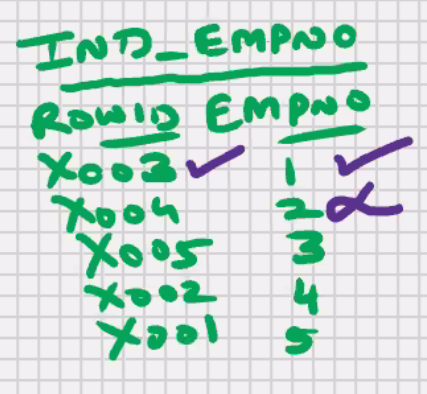 IND_EMPNO
ROWID EMPNO
X003 ✓ 1 ✓
X004 2
X005 3
X002 4
X001 5